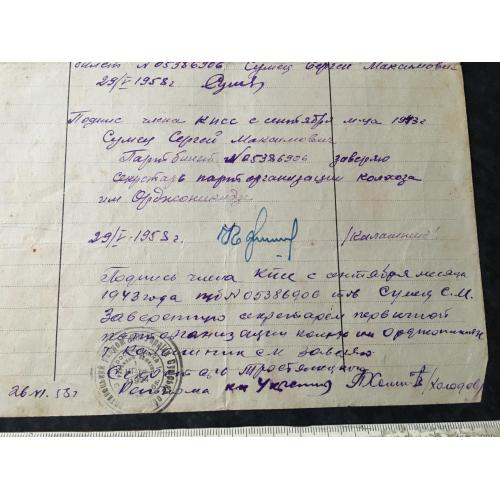 билет №05386906 Сумец Сергей Максимович
29/V-1953г Сумец
Подпис члена КПСС с сентября м-ца 1943г
Сумец Сергей Максимович
Партбилет №05386906 заверяю
Секретарь парторганизации колхоза
им Орджоникидзе
29/V-1953г. /Калашник/
Подпись члена КПСС с сентября месяца
1943 года п/б №05386906 тов Сумец С.М.
Заверенную секретарем первичной
парторганизации колхоза им Орджоникидзе
Калашником заверяю
Тростянецкого
Райкома КП Украины /Холодов/
26.VI.53г